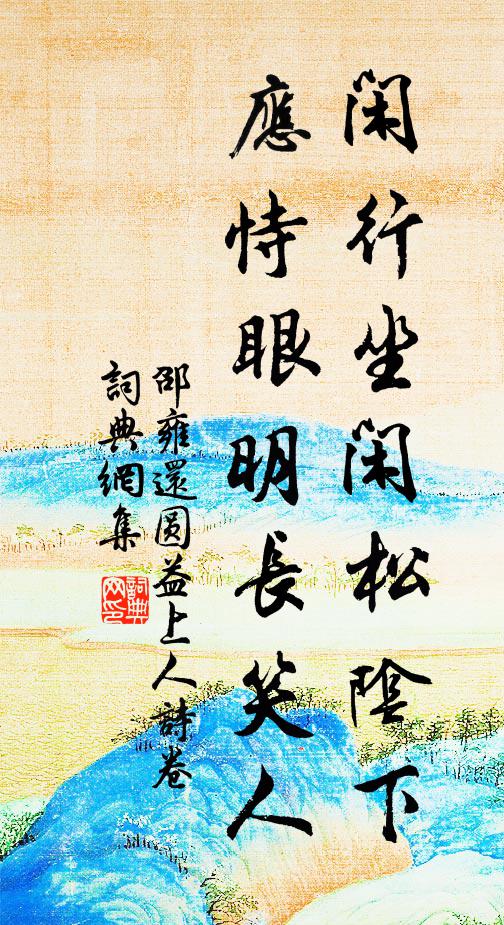 閑行坐閑松陰下
應恃眼明長笑人
邵雍還圓益上人詩卷
詞典網集
詞典
网印